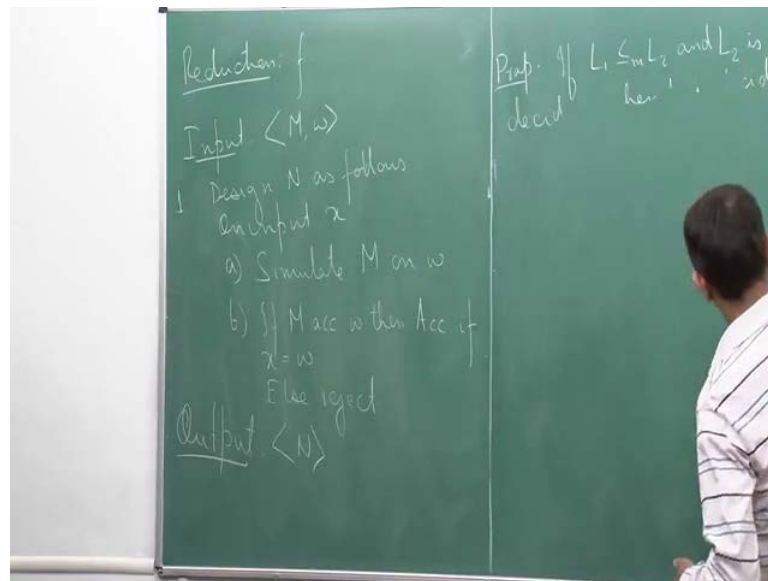 Reduction: f
Input <M, w>
1 Design N as follows
On input x
a) Simulate M on w
b) If M acc w then Acc if
x = w
Else reject
Output <N>
Prop. If L₁ ≤ₘ L₂ and L₂ is
decid